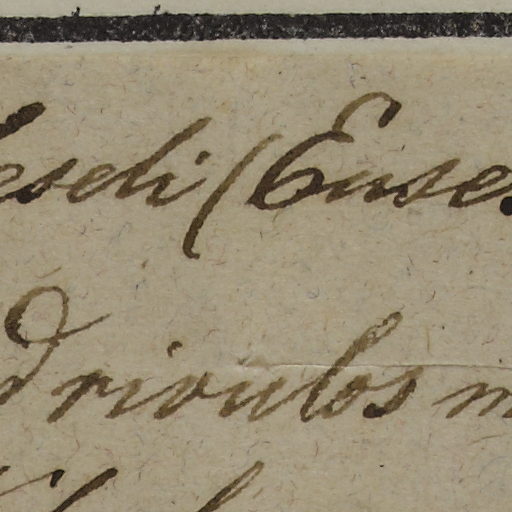 eseli (Ense
d rivulos m